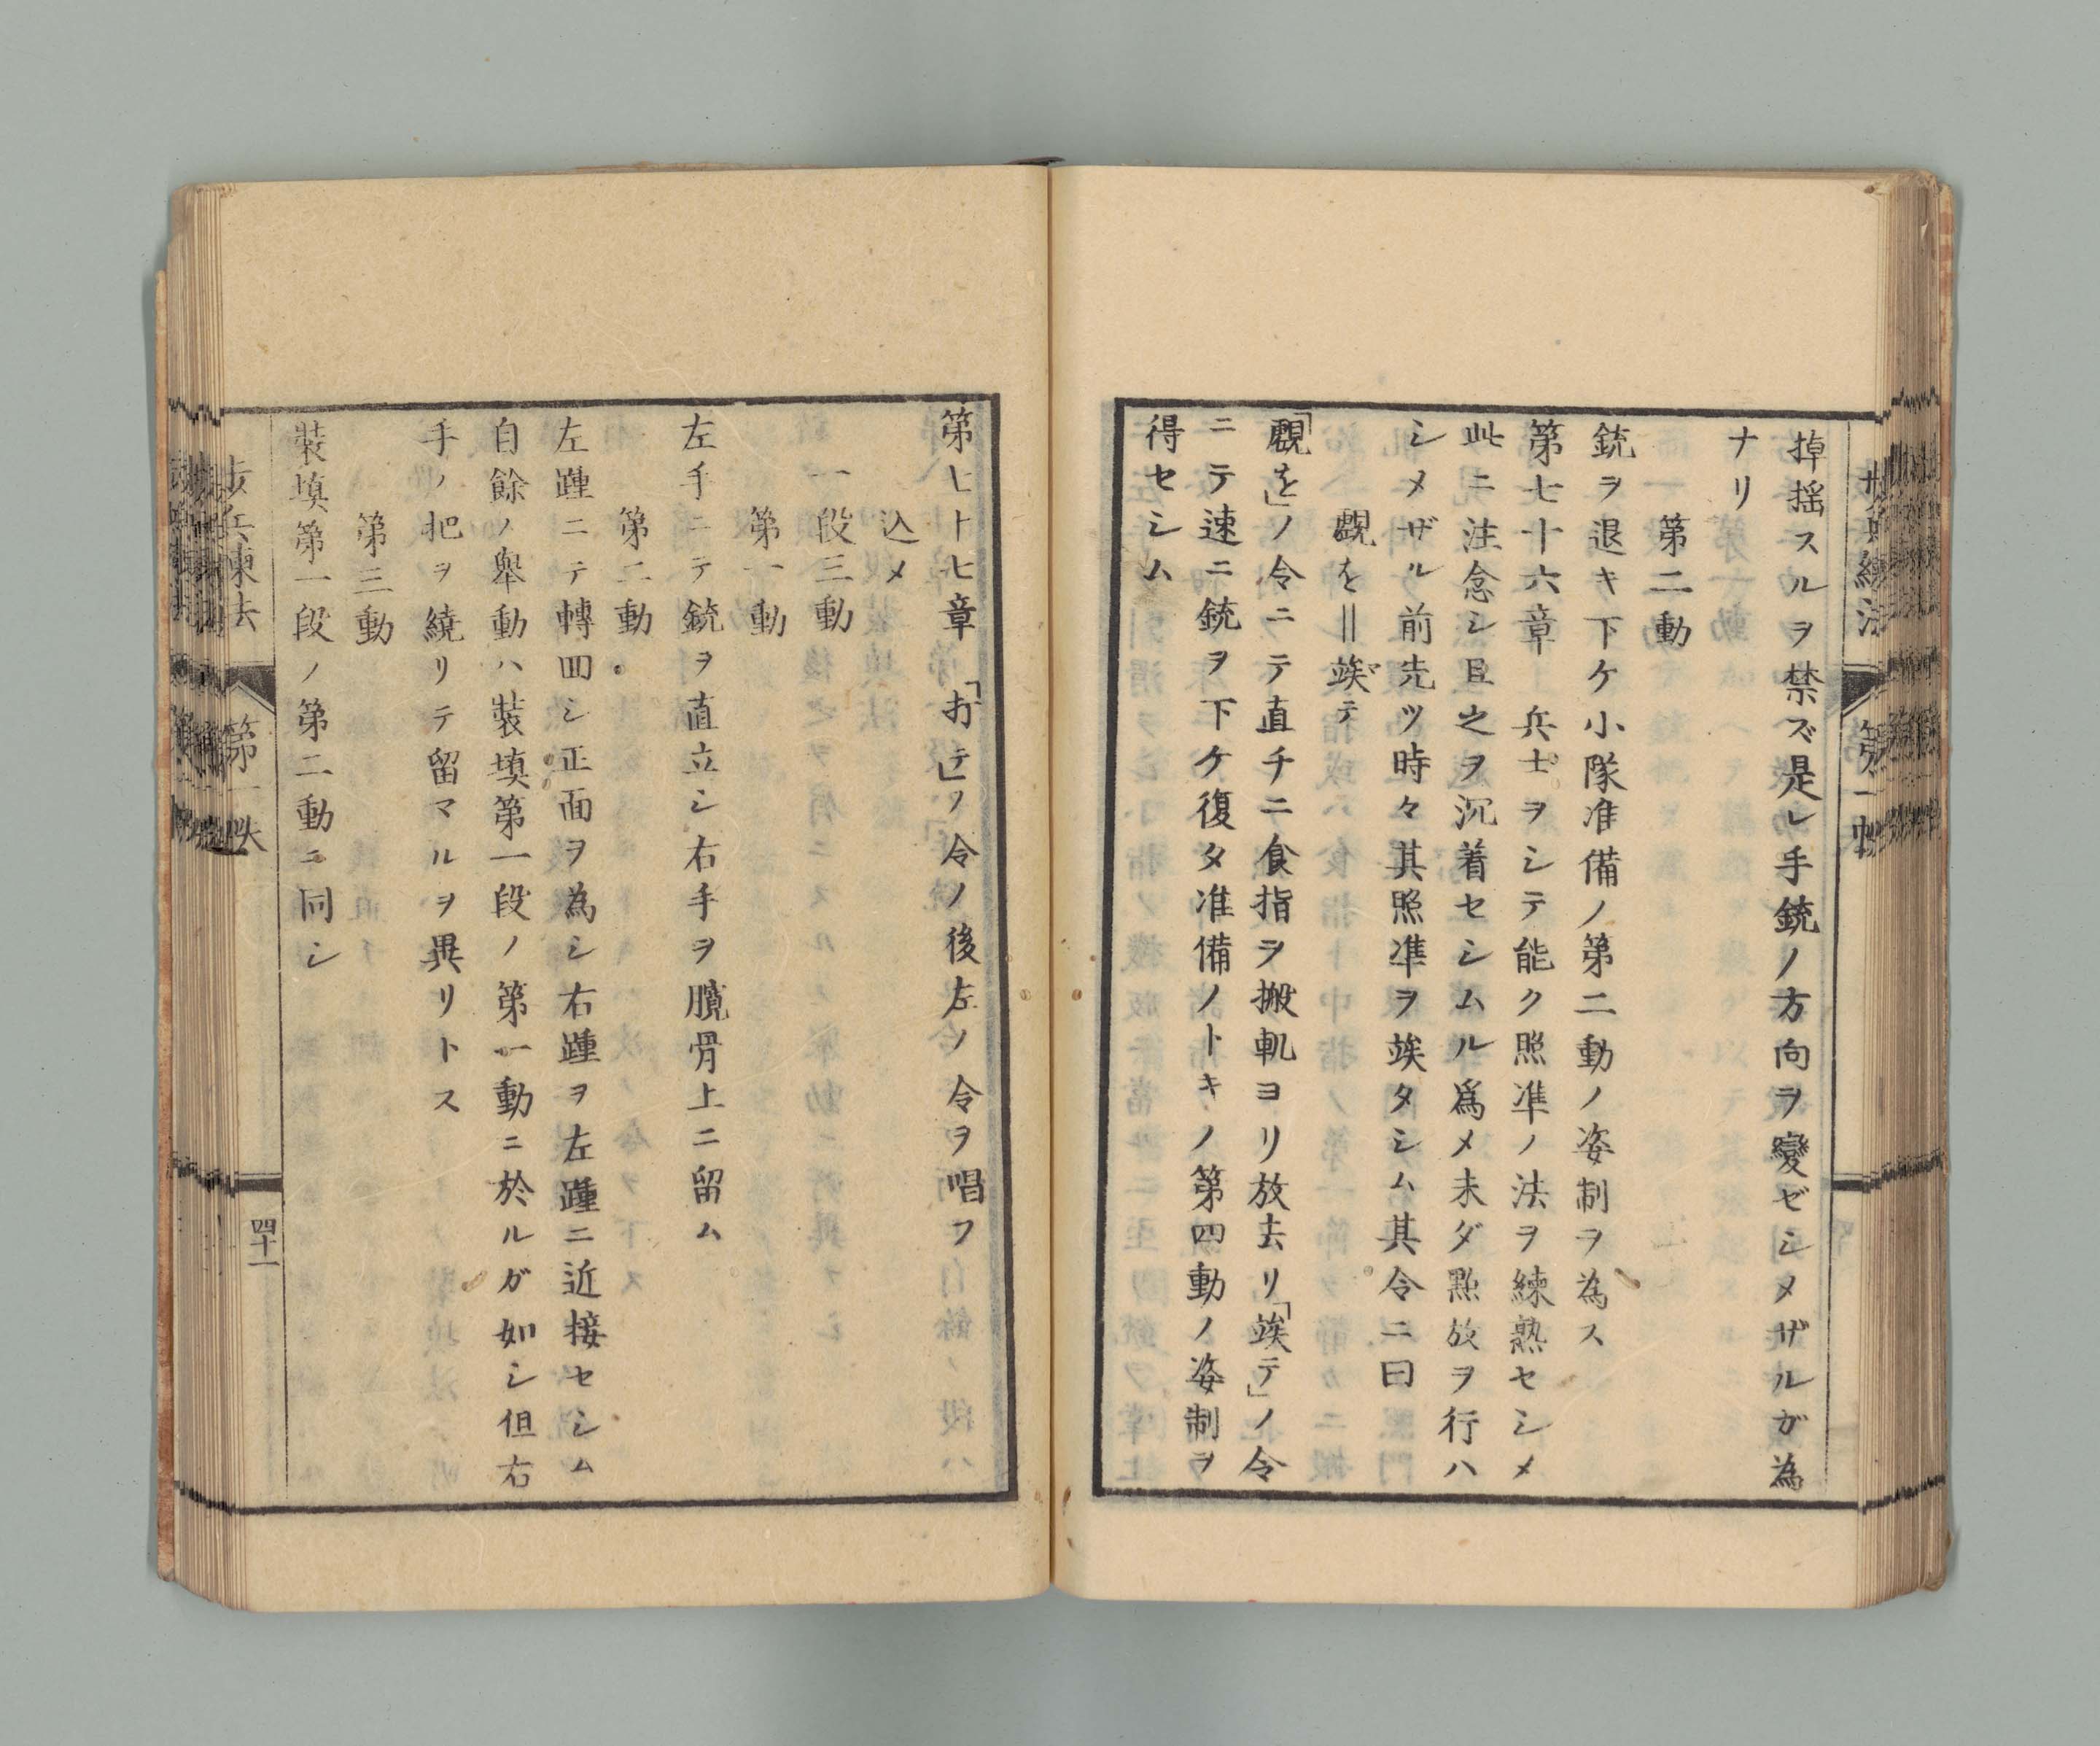 掉揺スルヲ禁ズ是レ手銃ノ方向ヲ變ゼシメザルガ為
ナリ
第二動
銃ヲ退キ下ケ小隊准備ノ第二動ノ姿制ヲ為ス
第七十六章 兵士ヲシテ能ク照準ノ法ヲ練熟セシメ
此ニ注念シ且之ヲ沉着セシムル爲メ未ダ㸃放ヲ行ハ
シメザル前先ツ時々其照準ヲ竢タシム其令ニ曰
覷を‖竢テ
「覷を」ノ令ニテ直チニ食指ヲ搬軏ヨリ放去リ「竢テ」ノ令
ニテ速ニ銃ヲ下ケ復タ准備ノトキノ第四動ノ姿制ヲ
得セシム
第七十七章 「打テ」ノ令ノ後左ノ令ヲ唱フ
込メ
一段三動
第一動
左手ニテ銃ヲ直立シ右手ヲ臗骨上ニ留ム
第二動
左踵ニテ轉囬シ正面ヲ為シ右踵ヲ左踵ニ近接セシム
自餘ノ舉動ハ裝填第一段ノ第一動ニ於ルガ如シ但右
手ノ把ヲ繞リテ留マルヲ異リトス
第三動
裝填第一段ノ第二動ニ同シ
歩兵練法 第一帙
四十一